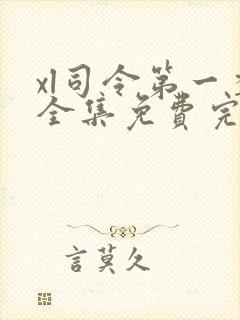 xl司令第一
全集免费完
言莫久